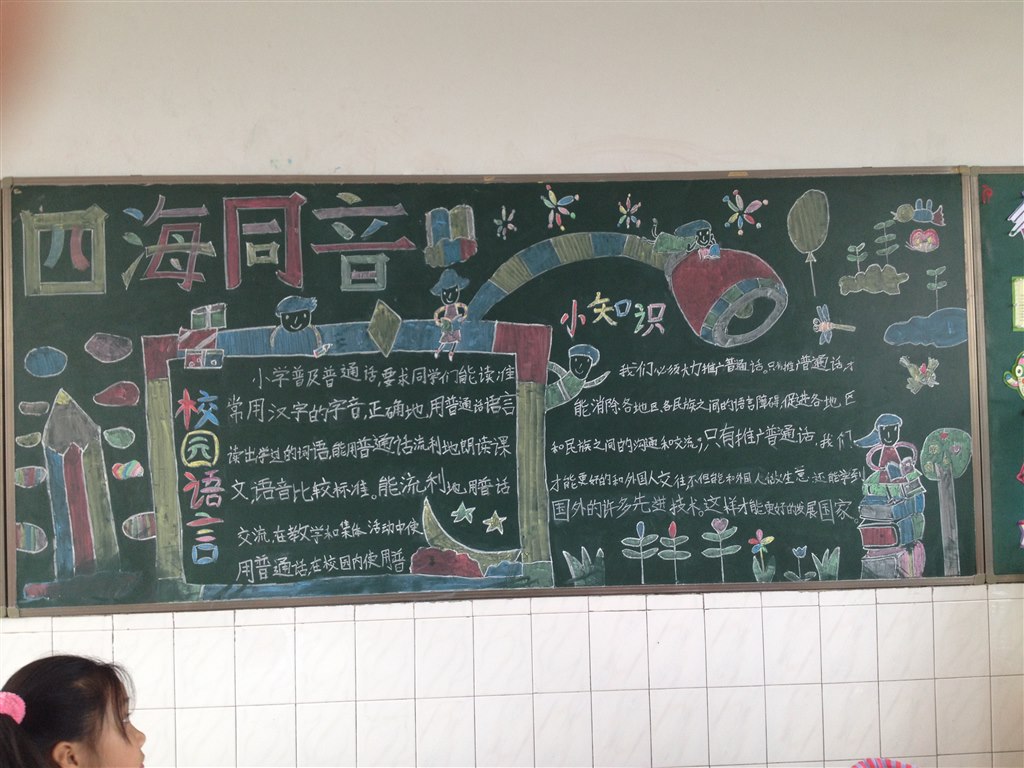 四海同音
校园语言
小学普及普通话,要求同学们能读准
常用汉字的字音,正确地,用普通话语言
读出学过的词语,能用普通话流利地朗读课
文,语音比较标准。能流利地,用普话
交流,在教学和集体活动中使
用普通话在校园内使用普
小知识
我们必须大力推广普通话。只有推广普通话,才
能消除各地区各民族之间的语言障碍,促进各地区
和民族之间的沟通和交流,只有推广普通话,我们
才能更好的和外国人交往不但能和外国人谈生意,还能学到
国外的许多先进技术,这样才能更好的发展国家。